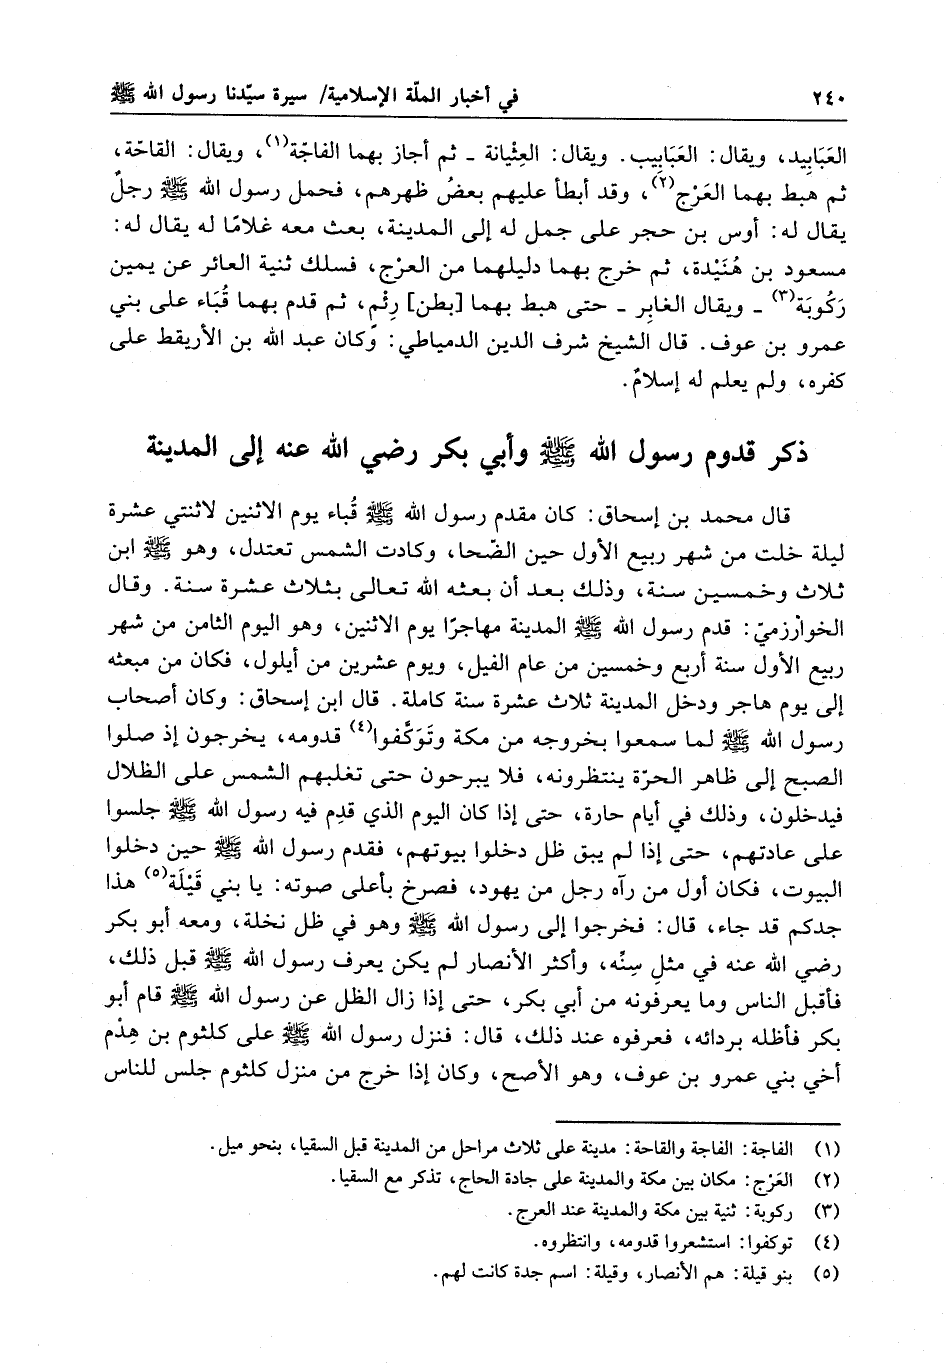 ٢٤٠ في أخبار الملّة الإسلامية/ سيرة سيّدنا رسول الله ﷺ
العَبَابِيد، ويقال: العَبَابِيب. ويقال: العِثْيانة ـ ثم أجاز بهما الفاجّة(١)، ويقال: القاحّة،
ثم هبط بهما العَرْج(٢)، وقد أبطأ عليهم بعضُ ظهرهم، فحمل رسول الله ﷺ رجلٌ
يقال له: أوس بن حجر على جمل له إلى المدينة، بعث معه غلامًا له يقال له:
مسعود بن هُنَيْدة، ثم خرج بهما دليلهما من العرْج، فسلك ثنية العائر عن يمين
رَكُوبَة(٣) ـ ويقال الغابِر ـ حتى هبط بهما [بطن] رِئْم، ثم قدم بهما قُبَاء على بني
عمرو بن عوف. قال الشيخ شرف الدين الدمياطي: وكان عبد الله بن الأريقط على
كفره، ولم يعلم له إسلامٌ.
ذكر قدوم رسول الله ﷺ وأبي بكر رضي الله عنه إلى المدينة
قال محمد بن إسحاق: كان مقدم رسول الله ﷺ قُباء يوم الاثنين لاثنتي عشرة
ليلة خلت من شهر ربيع الأول حين الضّحا، وكادت الشمس تعتدل، وهو ﷺ ابن
ثلاث وخمسين سنة، وذلك بعد أن بعثه الله تعالى بثلاث عشرة سنة. وقال
الخوارزميّ: قدم رسول الله ﷺ المدينة مهاجرًا يوم الاثنين، وهو اليوم الثامن من شهر
ربيع الأول سنة أربع وخمسين من عام الفيل، ويوم عشرين من أيلول، فكان من مبعثه
إلى يوم هاجر ودخل المدينة ثلاث عشرة سنة كاملة. قال ابن إسحاق: وكان أصحاب
رسول الله ﷺ لما سمعوا بخروجه من مكة وتَوَكَّفوا(٤) قدومه، يخرجون إذ صلوا
الصبح إلى ظاهر الحرّة ينتظرونه، فلا يبرحون حتى تغلبهم الشمس على الظلال
فيدخلون، وذلك في أيام حارة، حتى إذا كان اليوم الذي قدِم فيه رسول الله ﷺ جلسوا
على عادتهم، حتى إذا لم يبق ظل دخلوا بيوتهم، فقدم رسول الله ﷺ حين دخلوا
البيوت، فكان أول من رآه رجل من يهود، فصرخ بأعلى صوته: يا بني قَيْلَة(٥) هذا
جدكم قد جاء، قال: فخرجوا إلى رسول الله ﷺ وهو في ظل نخلة، ومعه أبو بكر
رضي الله عنه في مثلِ سِنّه، وأكثر الأنصار لم يكن يعرف رسول الله ﷺ قبل ذلك،
فأقبل الناس وما يعرفونه من أبي بكر، حتى إذا زال الظل عن رسول الله ﷺ قام أبو
بكر فأظله بردائه، فعرفوه عند ذلك، قال: فنزل رسول الله ﷺ على كلثوم بن هِدْم
أخي بني عمرو بن عوف، وهو الأصح، وكان إذا خرج من منزل كلثوم جلس للناس
(١) الفاجة: الفاجة والقاحة: مدينة على ثلاث مراحل من المدينة قبل السقيا، بنحو ميل.
(٢) العَرْج: مكان بين مكة والمدينة على جادة الحاج، تذكر مع السقيا.
(٣) ركوبة: ثنية بين مكة والمدينة عند العرج.
(٤) توكفوا: استشعروا قدومه، وانتظروه.
(٥) بنو قيلة: هم الأنصار، وقيلة: اسم جدة كانت لهم.